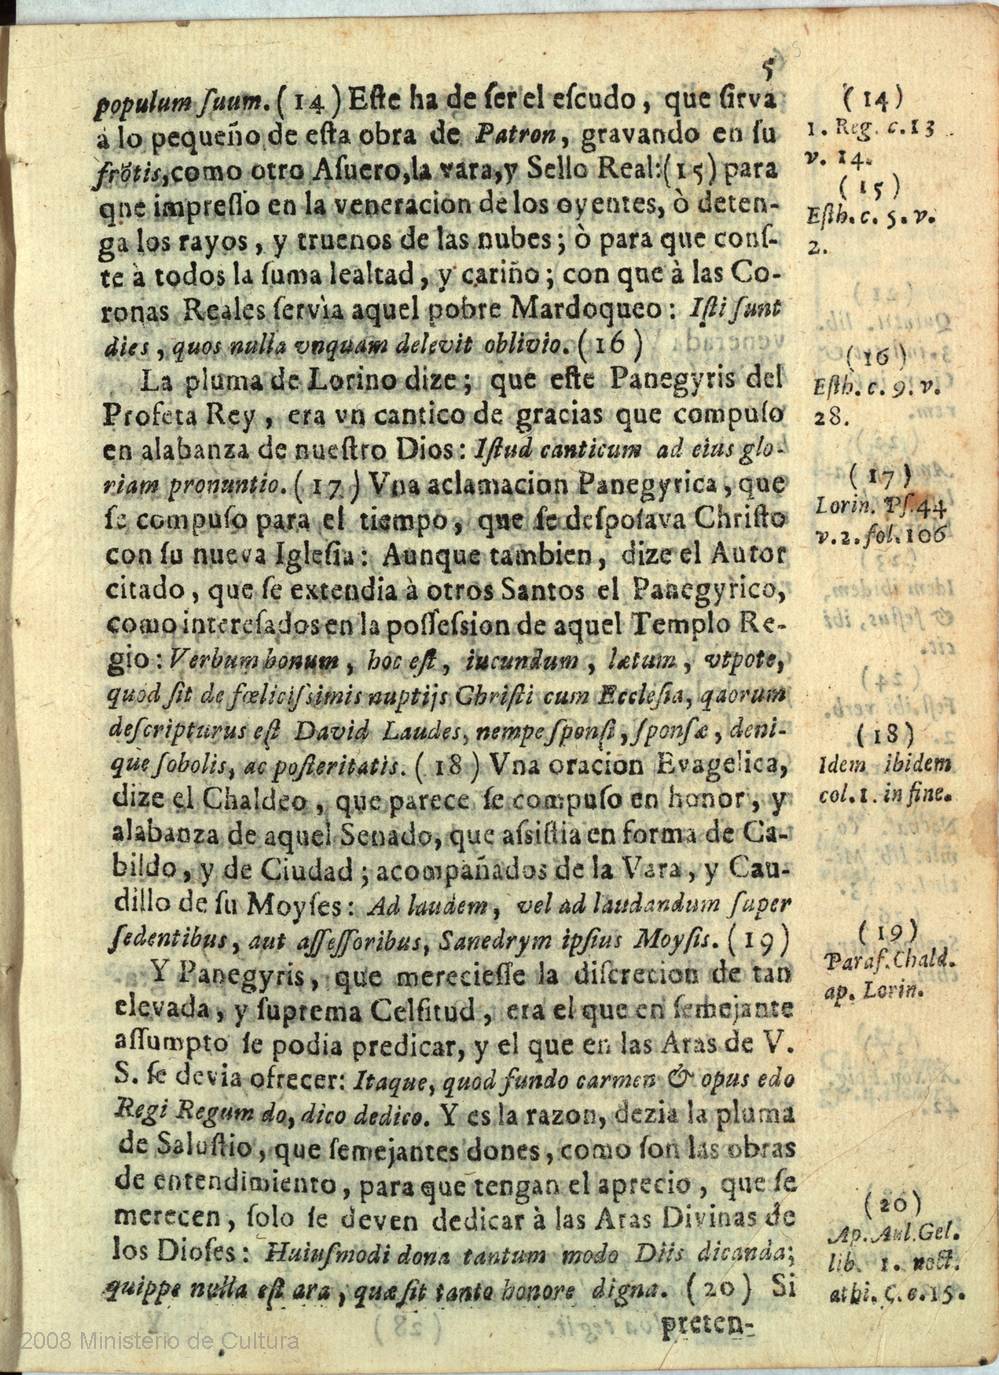 5
populum ſuum. (14) Eſte ha de ſer el eſcudo, que ſirva
à lo pequeño de eſta obra de Patron, gravando en ſu
frõtis, como otro Aſuero, la vara, y Sello Real: (15) para
que impreſſo en la veneracion de los oyentes, ò deten-
ga los rayos, y truenos de las nubes; ò para que conſ-
te à todos la ſuma lealtad, y cariño; con que à las Co-
ronas Reales ſervìa aquel pobre Mardoqueo: Iſti ſunt
dies, quos nulla vnquam delevit oblivio. (16)
La pluma de Lorino dize; que eſte Panegyris del
Profeta Rey, era vn cantico de gracias que compuſo
en alabanza de nueſtro Dios: Iſtud canticum ad eius glo-
riam pronuntio. (17) Vna aclamacion Panegyrica, que
ſe compuſo para el tiempo, que ſe deſpoſava Chriſto
con ſu nueva Igleſia: Aunque tambien, dize el Autor
citado, que ſe extendia à otros Santos el Panegyrico,
como intereſados en la poſſeſsion de aquel Templo Re-
gio: Verbum bonum, hoc eſt, iucundum, lætum, vtpote,
quod ſit de fœliciſsimis nuptijs Chriſti cum Eccleſia, quorum
deſcripturus eſt David Laudes, nempe ſponſi, ſponſæ, deni-
que ſobolis, ac poſteritatis. (18) Vna oracion Evagelica,
dize el Chaldeo, que parece ſe compuſo en honor, y
alabanza de aquel Senado, que aſsiſtia en forma de Ca-
bildo, y de Ciudad; acompañados de la Vara, y Cau-
dillo de ſu Moyſes: Ad laudem, vel ad laudandum ſuper
ſedentibus, aut aſſeſſoribus, Sanedrym ipſius Moyſis. (19)
Y Panegyris, que merecieſſe la diſcrecion de tan
elevada, y ſuprema Celſitud, era el que en ſemejante
aſſumpto ſe podia predicar, y el que en las Aras de V.
S. ſe devia ofrecer: Itaque, quod fundo carmen & opus edo
Regi Regum do, dico dedico. Y es la razon, dezia la pluma
de Saluſtio, que ſemejantes dones, como ſon las obras
de entendimiento, para que tengan el aprecio, que ſe
merecen, ſolo ſe deven dedicar à las Aras Divinas de
los Dioſes: Huiuſmodi dona tantum modo Diis dicanda;
quippe nulla eſt ara, quæ ſit tanto honore digna. (20) Si
preten-
(14)
1. Reg. c. 13
v. 14.
(15)
Eſth. c. 5. v.
2.
(16)
Eſth. c. 9. v.
28.
(17)
Lorin. Pſ. 44
v. 2. fol. 106
(18)
Idem ibidem
col. 1. in fine.
(19)
Paraf. Chald.
ap. Lorin.
(20)
Ap. Aul. Gel.
lib. 1. noct.
athi. C. e. 15.
2008 Ministerio de Cultura